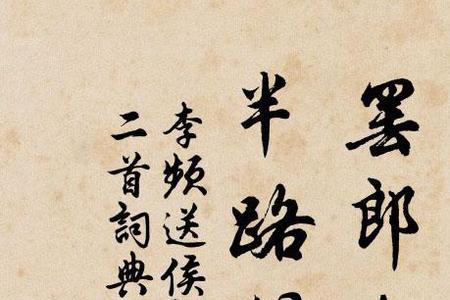 罢郎
半路
李频送侯
二首詞典